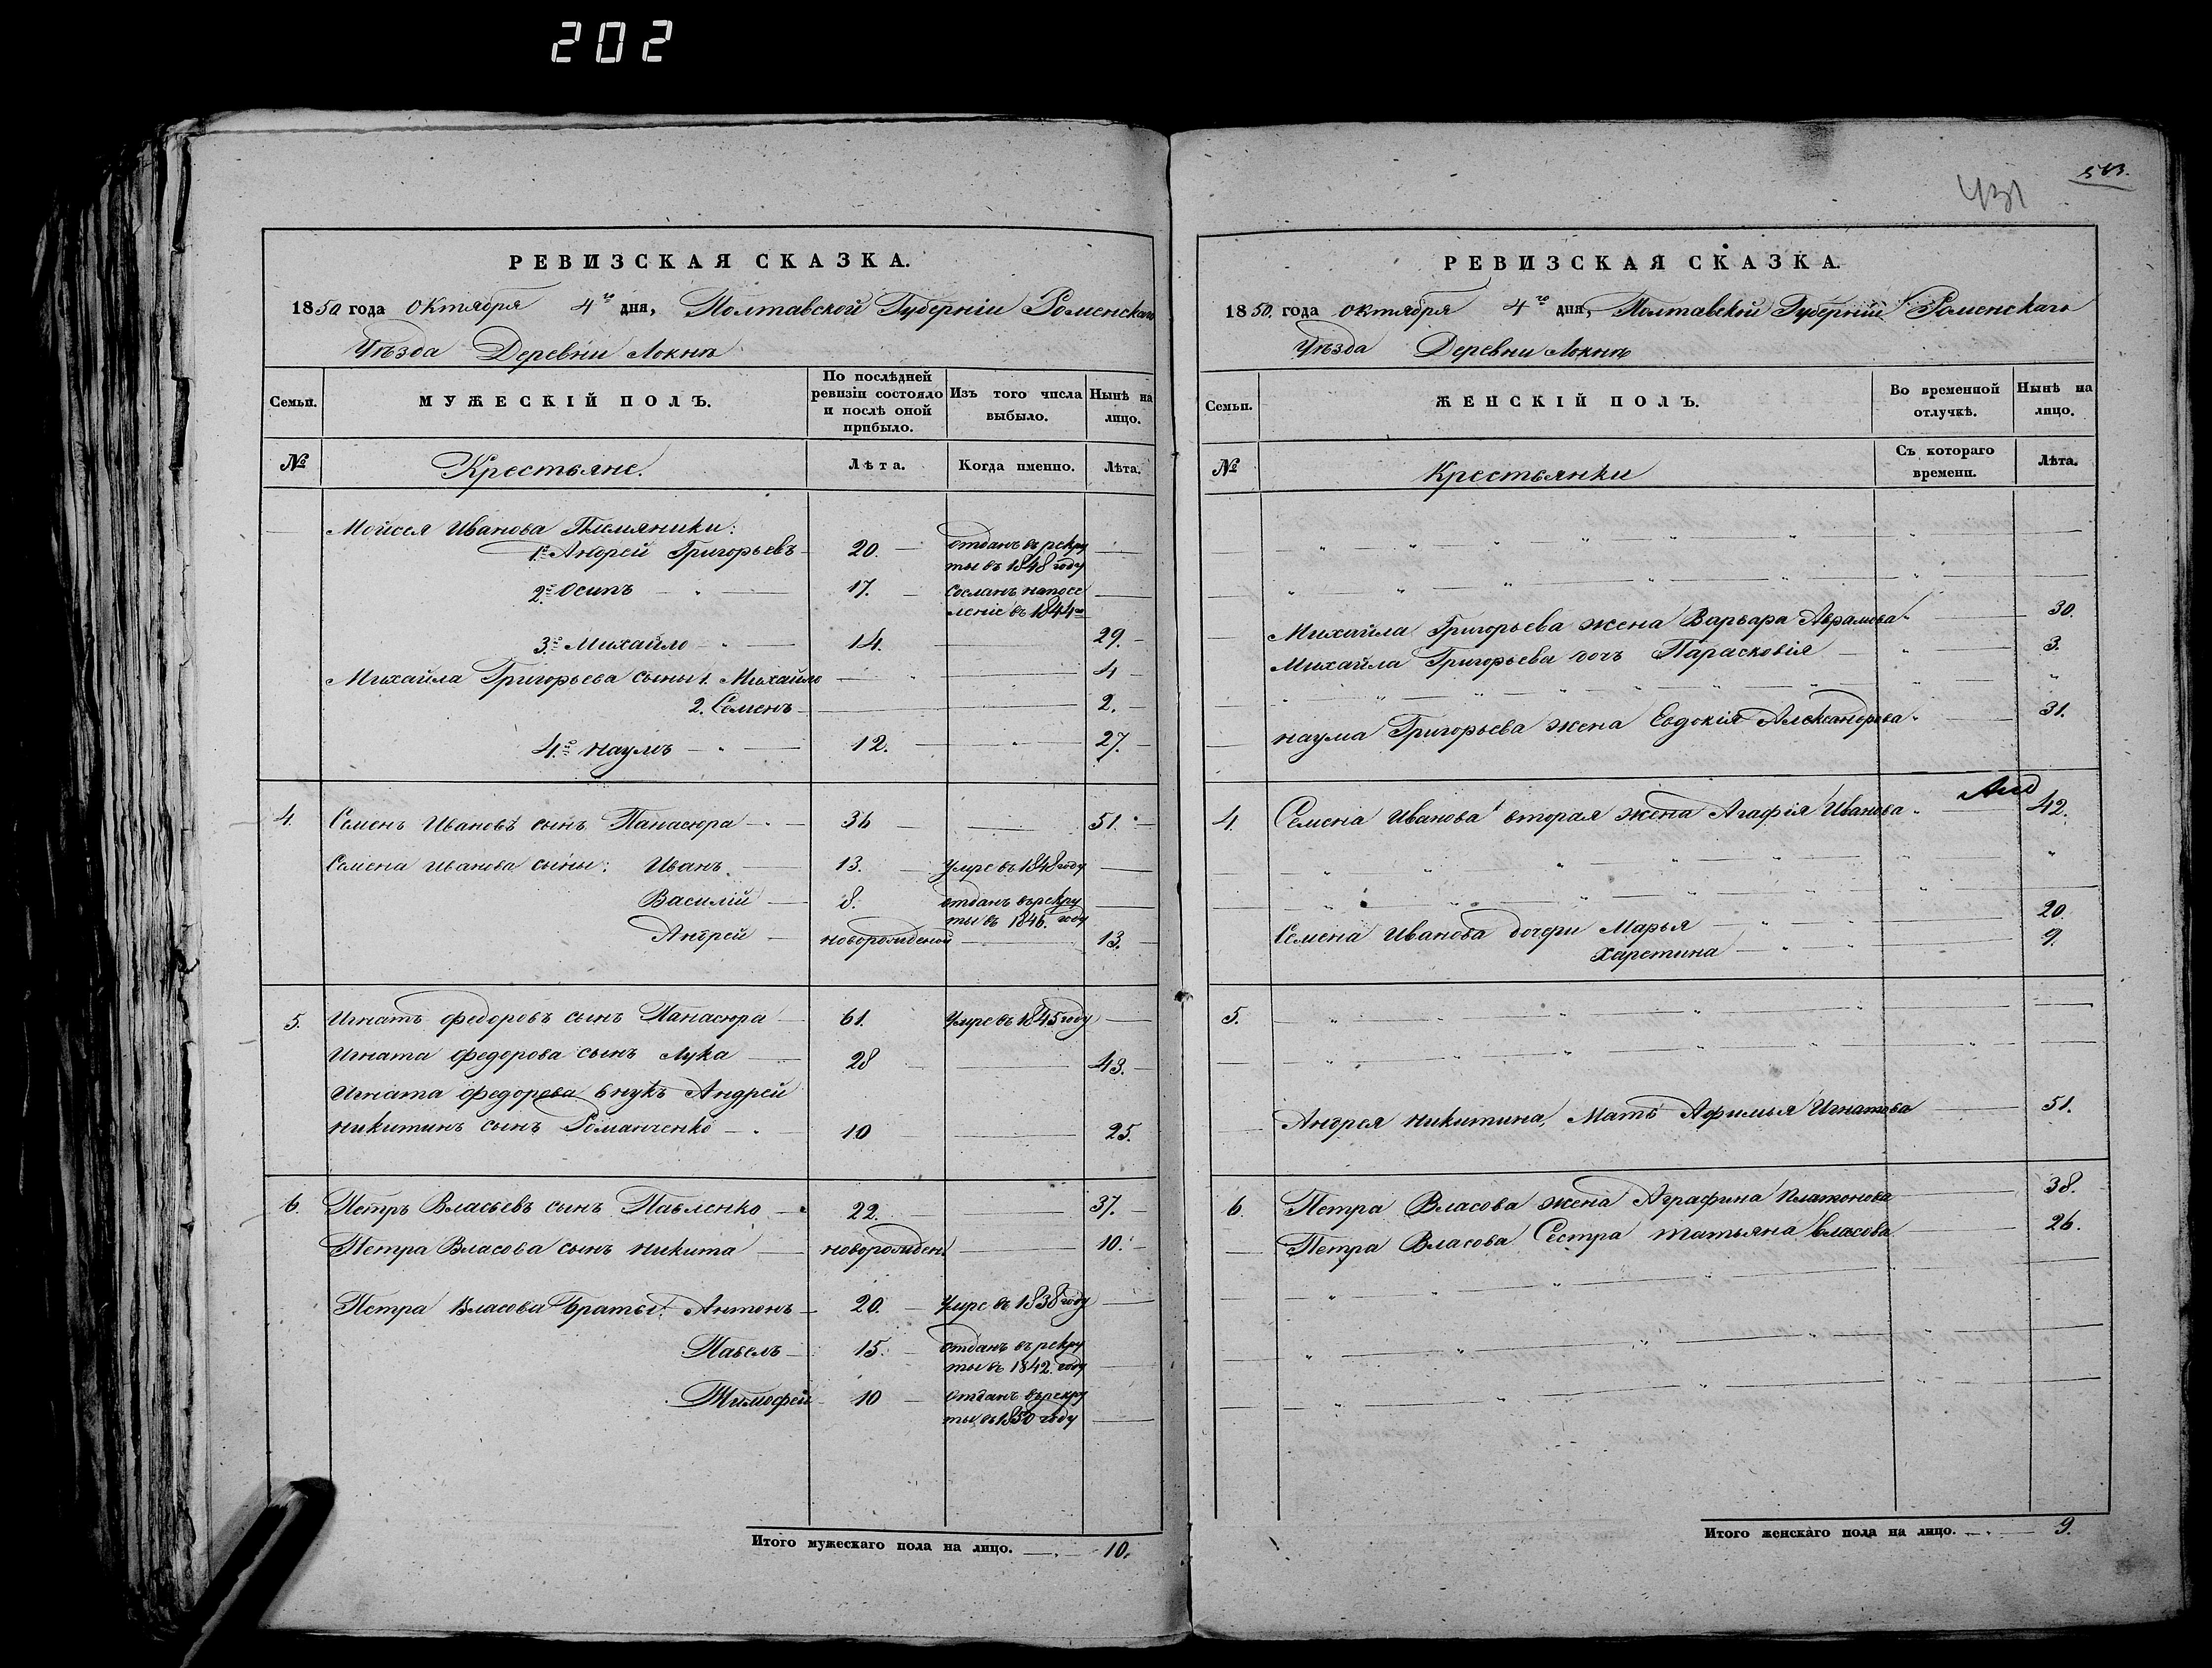 202
РЕВИЗСКАЯ СКАЗКА.
1850 года Октября 4го дня, Полтавской Губерніи Роменскаго
Уѣзда Деревни Локнѣ
Семьи.
МУЖЕСКІЙ ПОЛЪ.
По послѣдней ревизіи состояло и послѣ оной прибыло.
Изъ того числа выбыло.
Нынѣ на лицо.
№
Крестьяне.
Лѣта.
Когда именно.
Лѣта.
Мойсея Иванова Племяники:
1й Андрей Григорьевъ 20. отданъ въ рекру
ты въ 1848 году
2й Осипъ 17. Сосланъ на посе
леніе въ 1844
3й Михайло 14. 29.
Михайла Григорьева сыны 1. Михайло 4
2. Семенъ 2.
4й Наумъ 12. 27.
4. Семенъ Ивановъ сынъ Панасюра 36 51.
Семена Иванова сыны: Иванъ 13. Умре въ 1848 году
Василій 8. отданъ въ рекру
ты въ 1846. году
Андрей новорожденой 13.
5. Игнатъ Федоровъ сынъ Панасюра 61. Умре въ 1845 году
Игната Федорова сынъ Лука 28 43.
Игната Федорова внукъ Андрей
Никитинъ сынъ Романченко 10 25.
6. Петръ Власьевъ сынъ Павленко 22. 37.
Петра Власова сынъ Никита новорожден 10.
Петра Власова братья: Антонъ 20. Умре въ 1838 году
Павелъ 15. отданъ въ рекру
ты въ 1842. году
Тимофей 10 отданъ въ рекру
ты въ 1850 году
Итого мужескаго пола на лицо. 10.
431
513.
РЕВИЗСКАЯ СКАЗКА.
1850. года октября 4го дня, Полтавской Губерніи Роменскаго
Уѣзда Деревни Локнѣ
Семьи.
ЖЕНСКІЙ ПОЛЪ.
Во временной отлучкѣ.
Нынѣ на лицо.
№
Крестьянки
Съ котораго времени.
Лѣта.
Михайла Григорьева жена Варвара Аврамова 30.
Михайла Григорьева дочъ Парасковія 3.
Наума Григорьева жена Евдокія Александрова 31.
4. Семена Иванова вторая жена Агафія Иванова 42.
Семена Иванова дочери Марья 20.
Харетина 9.
5.
Андрея Никитина, Мать Афимья Игнатова 51.
6. Петра Власова жена Аграфина Платонова 38.
Петра Власова Сестра татьяна Власова 26.
Итого женскаго пола на лицо. 9.